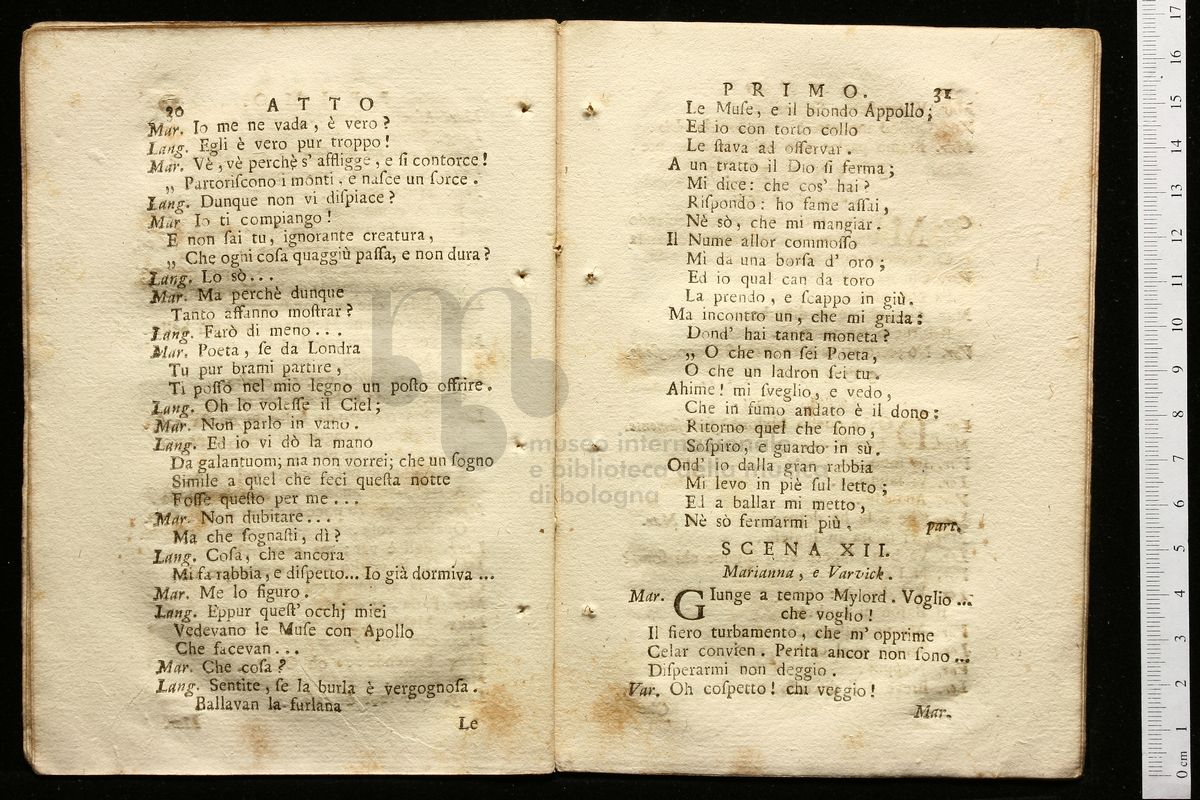 30 ATTO
Mar. Io me ne vada, è vero?
Lang. Egli è vero pur troppo!
Mar. Vè, vè perchè s' affligge, e ſi contorce!
„ Partoriſcono i monti, e naſce un ſorce.
Lang. Dunque non vi diſpiace?
Mar Io ti compiango!
E non ſai tu, ignorante creatura,
„ Che ogni coſa quaggiù paſſa, e non dura?
Lang. Lo sò...
Mar. Ma perchè dunque
Tanto affanno moſtrar?
Lang. Farò di meno...
Mar. Poeta, ſe da Londra
Tu pur brami partire,
Ti poſſo nel mio legno un poſto offrire.
Lang. Oh lo voleſſe il Ciel;
Mar. Non parlo in vano.
Lang. Ed io vi dò la mano
Da galantuom; ma non vorrei; che un ſogno
Simile a quel che feci queſta notte
Foſſe queſto per me...
Mar. Non dubitare...
Ma che ſognaſti, dì?
Lang. Coſa, che ancora
Mi fa rabbia, e diſpetto... Io già dormiva...
Mar. Me lo figuro.
Lang. Eppur queſt' occhj miei
Vedevano le Muſe con Apollo
Che facevan...
Mar. Che coſa?
Lang. Sentite, ſe la burla è vergognoſa.
Ballavan la furlana
Le
PRIMO. 31
Le Muſe, e il biondo Appollo;
Ed io con torto collo
Le ſtava ad oſſervar.
A un tratto il Dio ſi ferma;
Mi dice: che cos' hai?
Riſpondo: ho fame aſſai,
Nè sò, che mi mangiar.
Il Nume allor commoſſo
Mi da una borſa d' oro;
Ed io qual can da toro
La prendo, e ſcappo in giù.
Ma incontro un, che mi grida:
Dond' hai tanta moneta?
„ O che non ſei Poeta,
O che un ladron ſei tu.
Ahime! mi ſveglio, e vedo,
Che in fumo andato è il dono:
Ritorno quel che ſono,
Soſpiro, e guardo in sù.
Ond' io dalla gran rabbia
Mi levo in piè ſul letto;
Ed a ballar mi metto,
Nè sò fermarmi più. part.
SCENA XII.
Marianna, e Varvick.
Mar. GIunge a tempo Mylord. Voglio...
che voglio!
Il fiero turbamento, che m' opprime
Celar convien. Perita ancor non ſono...
Diſperarmi non deggio.
Var. Oh coſpetto! chi veggio!
Mar.
museo internazionale
e biblioteca della musica
di bologna
0 cm 1 2 3 4 5 6 7 8 9 10 11 12 13 14 15 16 17